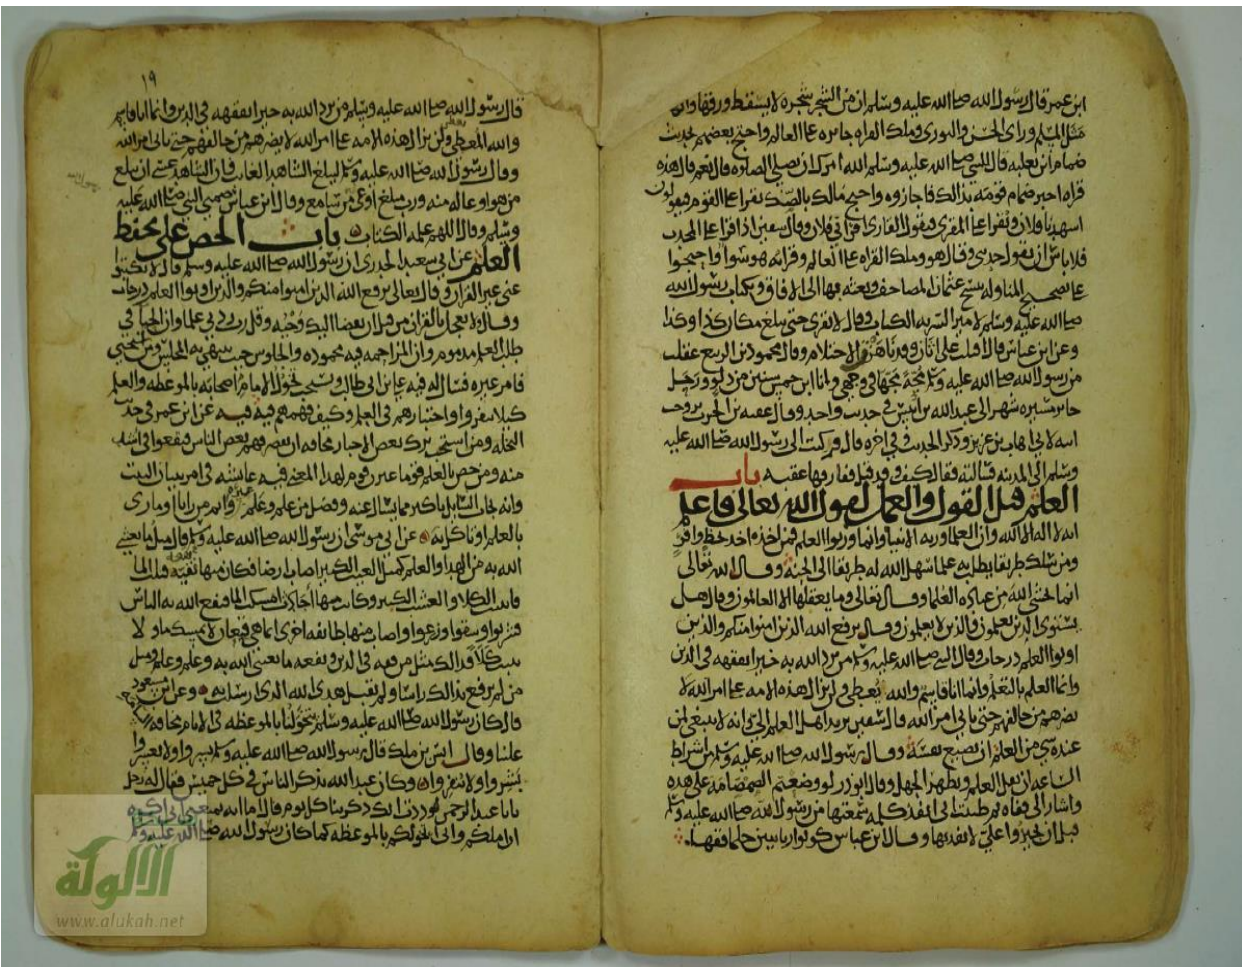 ابن عمر قال رسول الله صلى الله عليه وسلم ان من الشجر شجره لا يسقط ورقها وانه
مثل المسلم وراى الحسن والثوري ومالك القراه جائزه على العالم واحتج بعضهم بحديث
ضمام ابن ثعلبه قال للنبي صلى الله عليه وسلم الله امرك ان نصلي الصلاه قال نعم قال فهذه
قراه اخبر ضمام قومه بذلك فاجازوه واحتج مالك بالصك يقرا على القوم فيقولون
اشهدنا فلان ويقرا على المقري فيقول القاري اقراني فلان وقال سفين اذا قرا على المحدث
فلا باس ان يقول حدثني وقال هو ومالك القراه على العالم وقراته هو سوا واحتجوا
على تصحيح المناوله بنسخ عثمان المصاحف وبعثه بها الى الافاق وبكتاب رسول الله
صلى الله عليه وسلم لامير السريه الكتاب وقال لا تقرى حتى تبلغ مكان كذا وكذا
وعن ابن عباس قال اقبلت على اتان وقد ناهزت الاحتلام وقال محمود بن الربيع عقلت
من رسول الله صلى الله عليه وسلم مجة مجها في وجهي وانا ابن خمس سنين من دلو ورحل
جابر مسيره شهر الى عبد الله بن انيس في حديث واحد وقال عقبه بن الحرث تزوجت
ابنه لابي اهاب بن عزيز وذكر الحديث وفي اخره قال فركبت الى رسول الله صلى الله عليه
وسلم الى المدينه فسالته فقال كيف وقد قيل ففارقها عقبه باب
العلم قبل القول والعمل لقول الله تعالى فاعلم
انه لا اله الا الله وان العلما ورثه الانبيا وانما ورثوا العلم فمن اخذه اخذ بحظ وافر
ومن سلك طريقا يطلب به علما سهل الله له طريقا الى الجنة وقال الله تعالى
انما يخشى الله من عباده العلما وقال تعالى وما يعقلها الا العالمون وقال هل
يستوي الذين يعلمون والذين لا يعلمون وقال يرفع الله الذين امنوا منكم والذين
اوتوا العلم درجات وقال النبي صلى الله عليه وسلم من يرد الله به خيرا يفقهه في الدين
وانما العلم بالتعلم وانما انا قاسم والله يعطي ولن تزال هذه الامه على امر الله لا
يضرهم من خالفهم حتى ياتي امر الله قال لا ينبغي لمن
عنده شي من العلم ان يضيع نفسه وقال رسول الله صلى الله عليه وسلم من اشراط
الساعه ان يقل العلم ويظهر الجهل وقال ابو ذر لو وضعتم الصمصامه على هذه
واشار الى قفاه ثم ظننت اني انفذ كلمه سمعتها من رسول الله صلى الله عليه وسلم
قبل ان تجيزوا علي لانفذتها وقال ابن عباس كونوا ربانيين حلما فقها
١٩
قال رسول الله صلى الله عليه وسلم من يرد الله به خيرا يفقهه في الدين وانما انا قاسم
والله المعطي ولن تزال هذه الامه على امر الله لا يضرهم من خالفهم حتى ياتي امر الله
وقال رسول الله صلى الله عليه وسلم ليبلغ الشاهد الغايب فان الشاهد عسى ان يبلغ
من هو اوعى له منه ورب مبلغ اوعى من سامع وقال ابن عباس ضمني النبي صلى الله عليه
وسلم وقال اللهم علمه الكتاب باب الحض على حفظ
العلم عن ابي سعيد الخدري ان رسول الله صلى الله عليه وسلم قال لا تكتبوا
عني غير القران وقال تعالى يرفع الله الذين امنوا منكم والذين اوتوا العلم درجات
وقال ولا تعجل بالقران من قبل ان يقضا اليك وحيه وقل رب زدني علما وان الحيا في
طلب العلم مذموم وان المزاحمه فيه محموده والجلوس حيث ينتهي به المجلس ومن استحيى
فامر غيره فسال له فيه علي بن ابي طالب ويستحب تخول الامام اصحابه بالموعظه والعلم
كيلا ينفروا واختبارهم في العلم وكيف فهمهم فيه فيه عن ابن عمر في حديث
النخله ومن استحب ترك بعض الاخبار مخافه ان يقصر فهم بعض الناس فيقعوا في اشد
منه ومن خص بالعلم قوما غير قوم لهذا المعنى فيه عائشه في امر بنيان البيت
وانه يجاب السايل باكثر مما يسال عنه وفضل من علم وعلم واثم من رايا او مارى
بالعلم او تاكل به عن ابي موسى ان رسول الله صلى الله عليه وسلم قال مثل ما بعثني
الله به من الهدا والعلم كمثل الغيث الكثير اصاب ارضا فكان منها نقية قبلت الما
فانبتت الكلا والعشب الكثير وكانت منها اجادب امسكت الما فنفع الله به الناس
فشربوا وسقوا وزرعوا واصاب منها طائفه اخرى انما هي قيعان لا تمسك ماء ولا
تنبت كلا فذلك مثل من فقه في الدين ونفعه ما بعثني الله به وعلم وعلم ومثل
من لم يرفع بذلك راسا ولم يقبل هدى الله الذي ارسلت به وعن ابن مسعود
قال كان رسول الله صلى الله عليه وسلم يتخولنا بالموعظه في الايام مخافه
علينا وقال انس بن ملك قال رسول الله صلى الله عليه وسلم يسروا ولا تعسروا
بشروا ولا تنفروا وكان عبد الله يذكر الناس في كل خميس فقال له رجل
يا با عبد الرحمن لوددت انك ذكرتنا كل يوم قال اما انه يمنعني اني اكره
ان املكم واني اتخولكم بالموعظه كما كان رسول الله صلى الله عليه وسلم
الألوكة
www.alukah.net